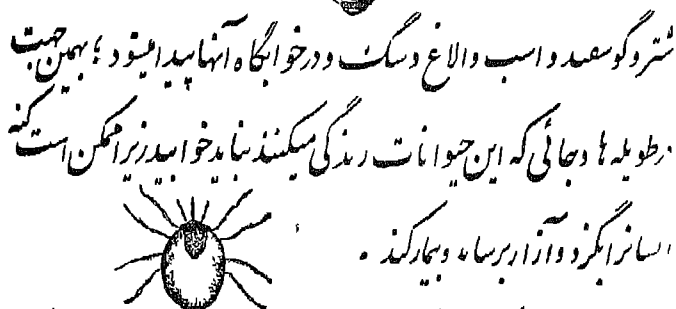 شتر و گوسفند و اسب و الاغ و سگ و در خوابگاه آنها پیدا میشود ؛ بهمین جهت
در طویله ها و جائی که این حیوانات زندگی میکنند نباید خوابید زیرا ممکن است کنه
انسانرا بگزد و آزار برساند و بیمار کند .